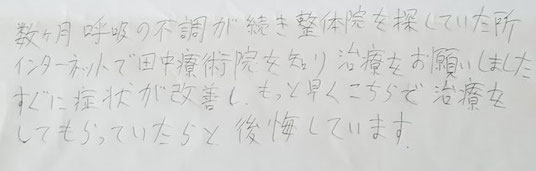 数ヶ月呼吸の不調が続き整体院を探していた所
インターネットで田中療術院を知り治療をお願いしました
すぐに症状が改善し、もっと早くこちらで治療を
してもらっていたらと後悔しています。